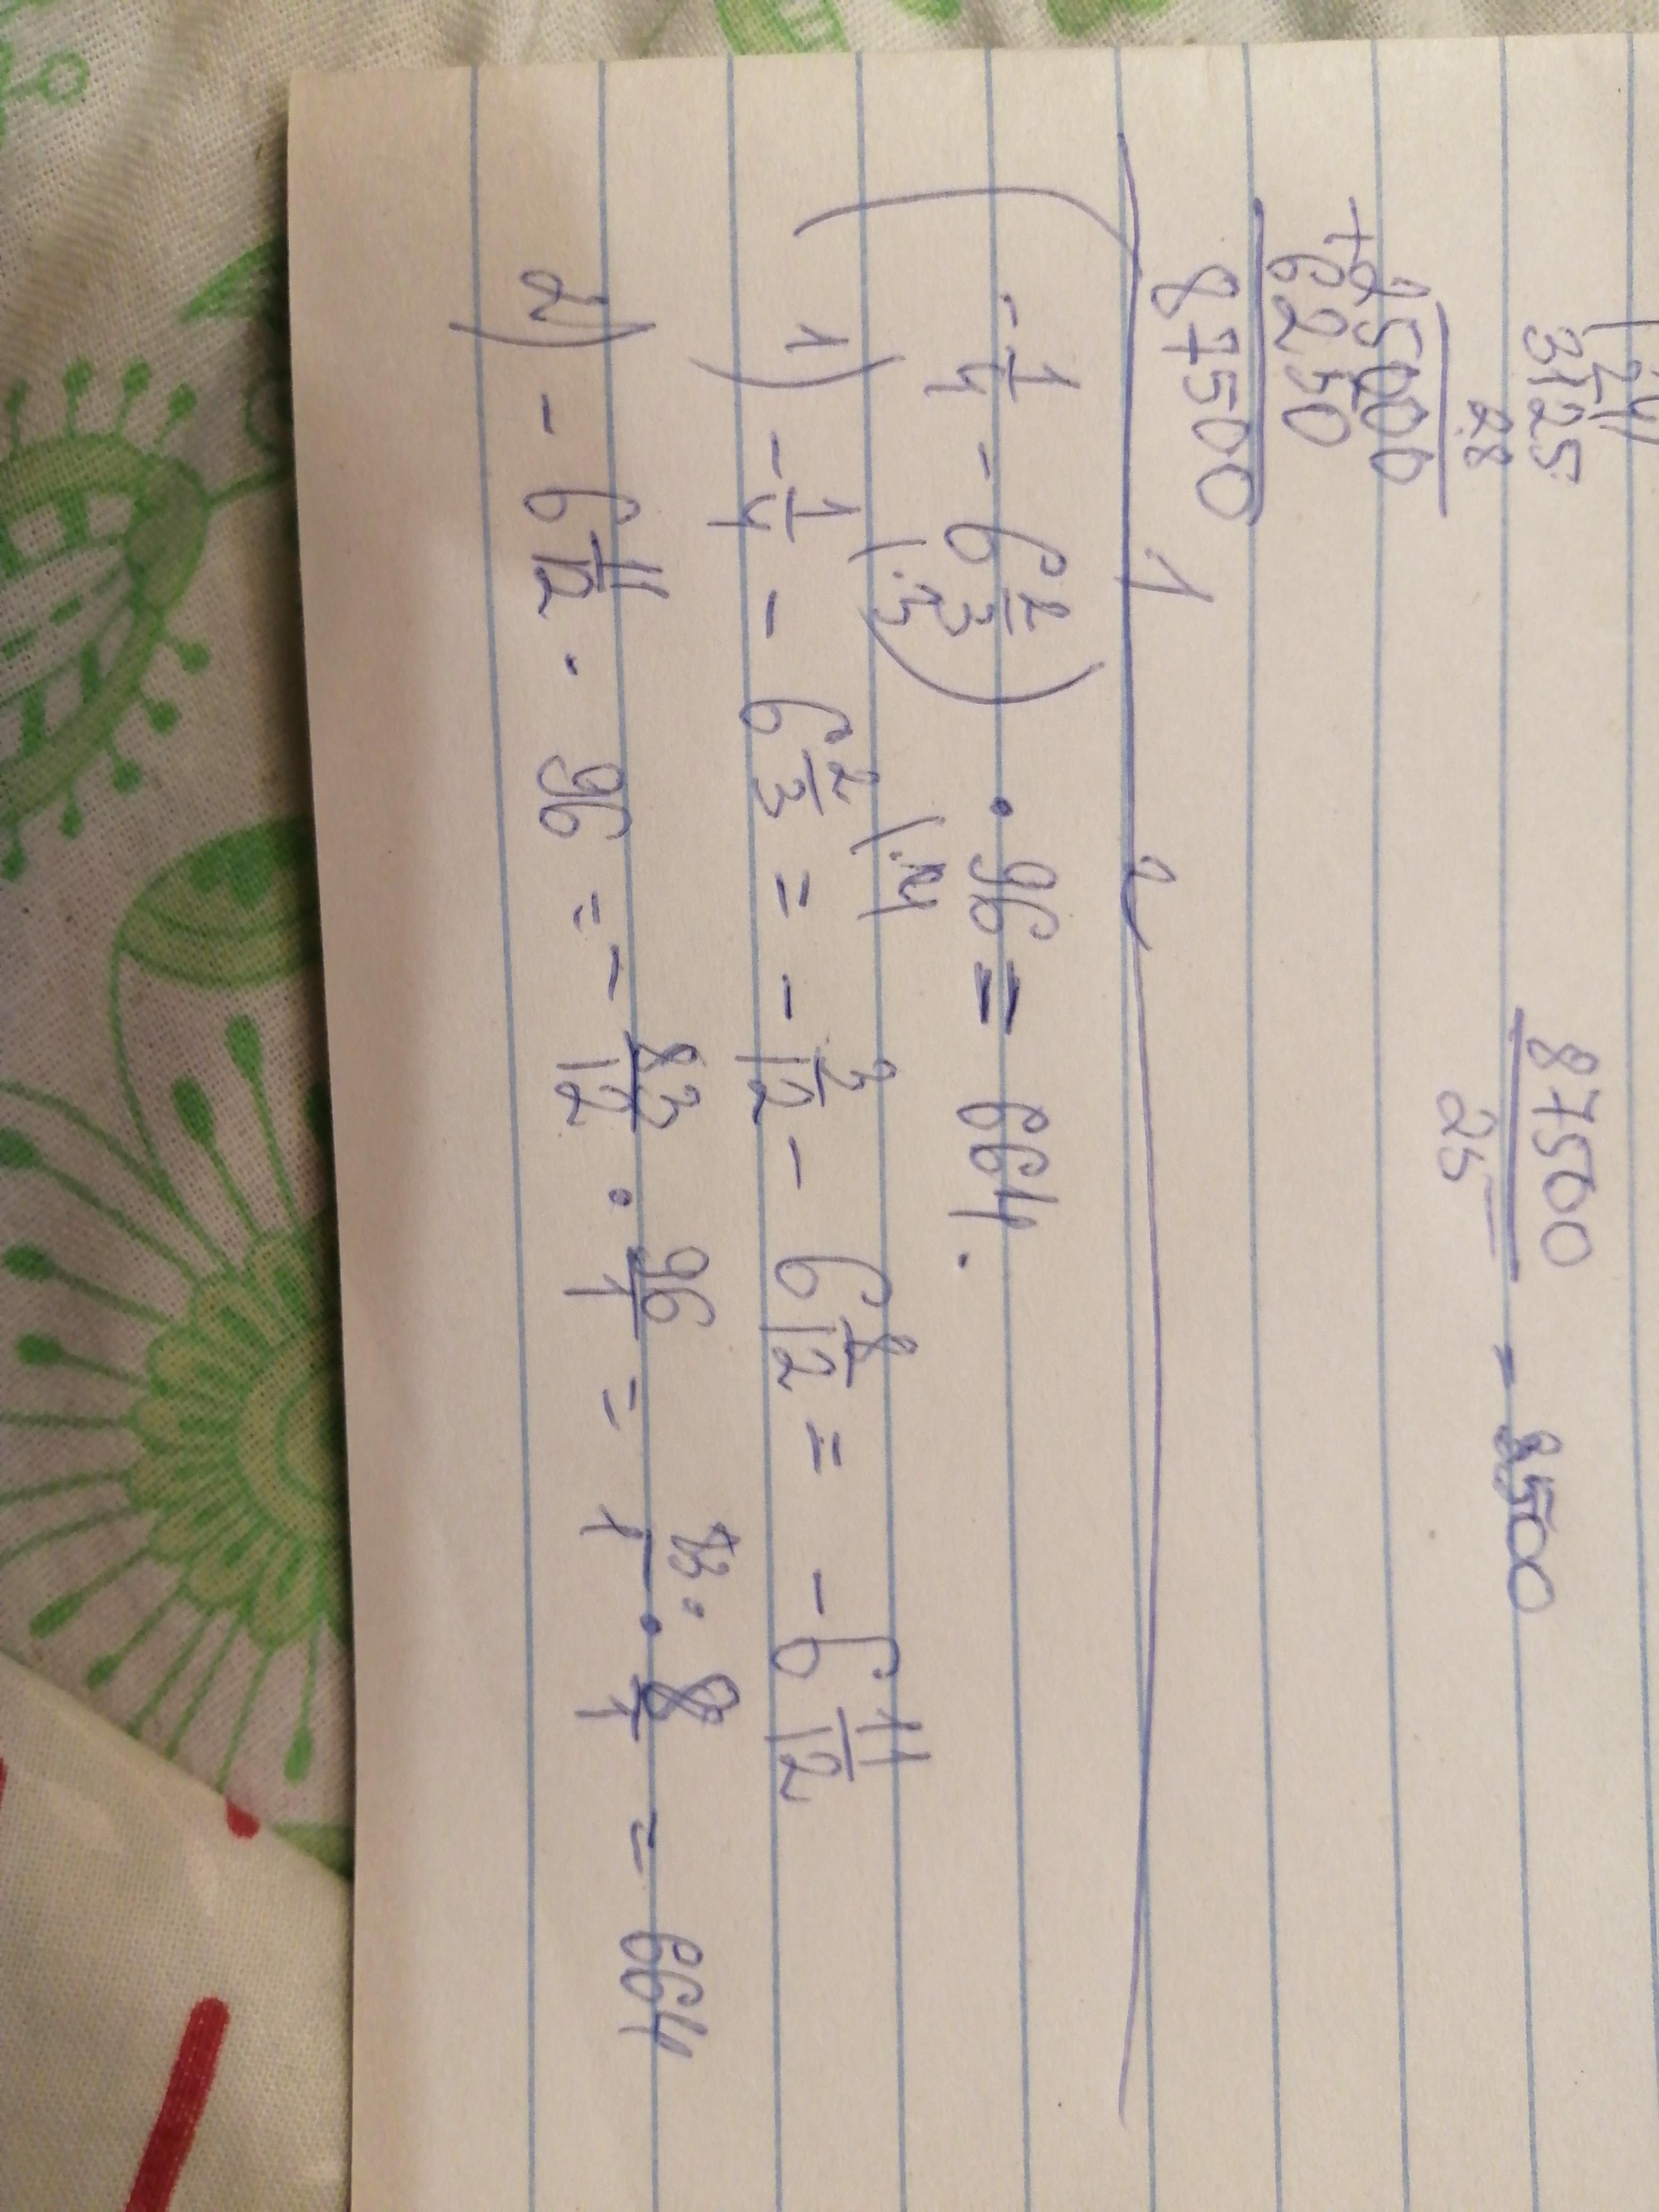 3125
28
25000
+ 6250
87500
87500 / 25 = 3500
1 2
(-1/4 - 6 2/3) · 96 = 664.
(·3) (·4)
1) -1/4 - 6 2/3 = - 3/12 - 6 8/12 = - 6 11/12
2) - 6 11/12 · 96 = - 83/12 · 96/1 = 83 · 8 / 1 · 1 = 664